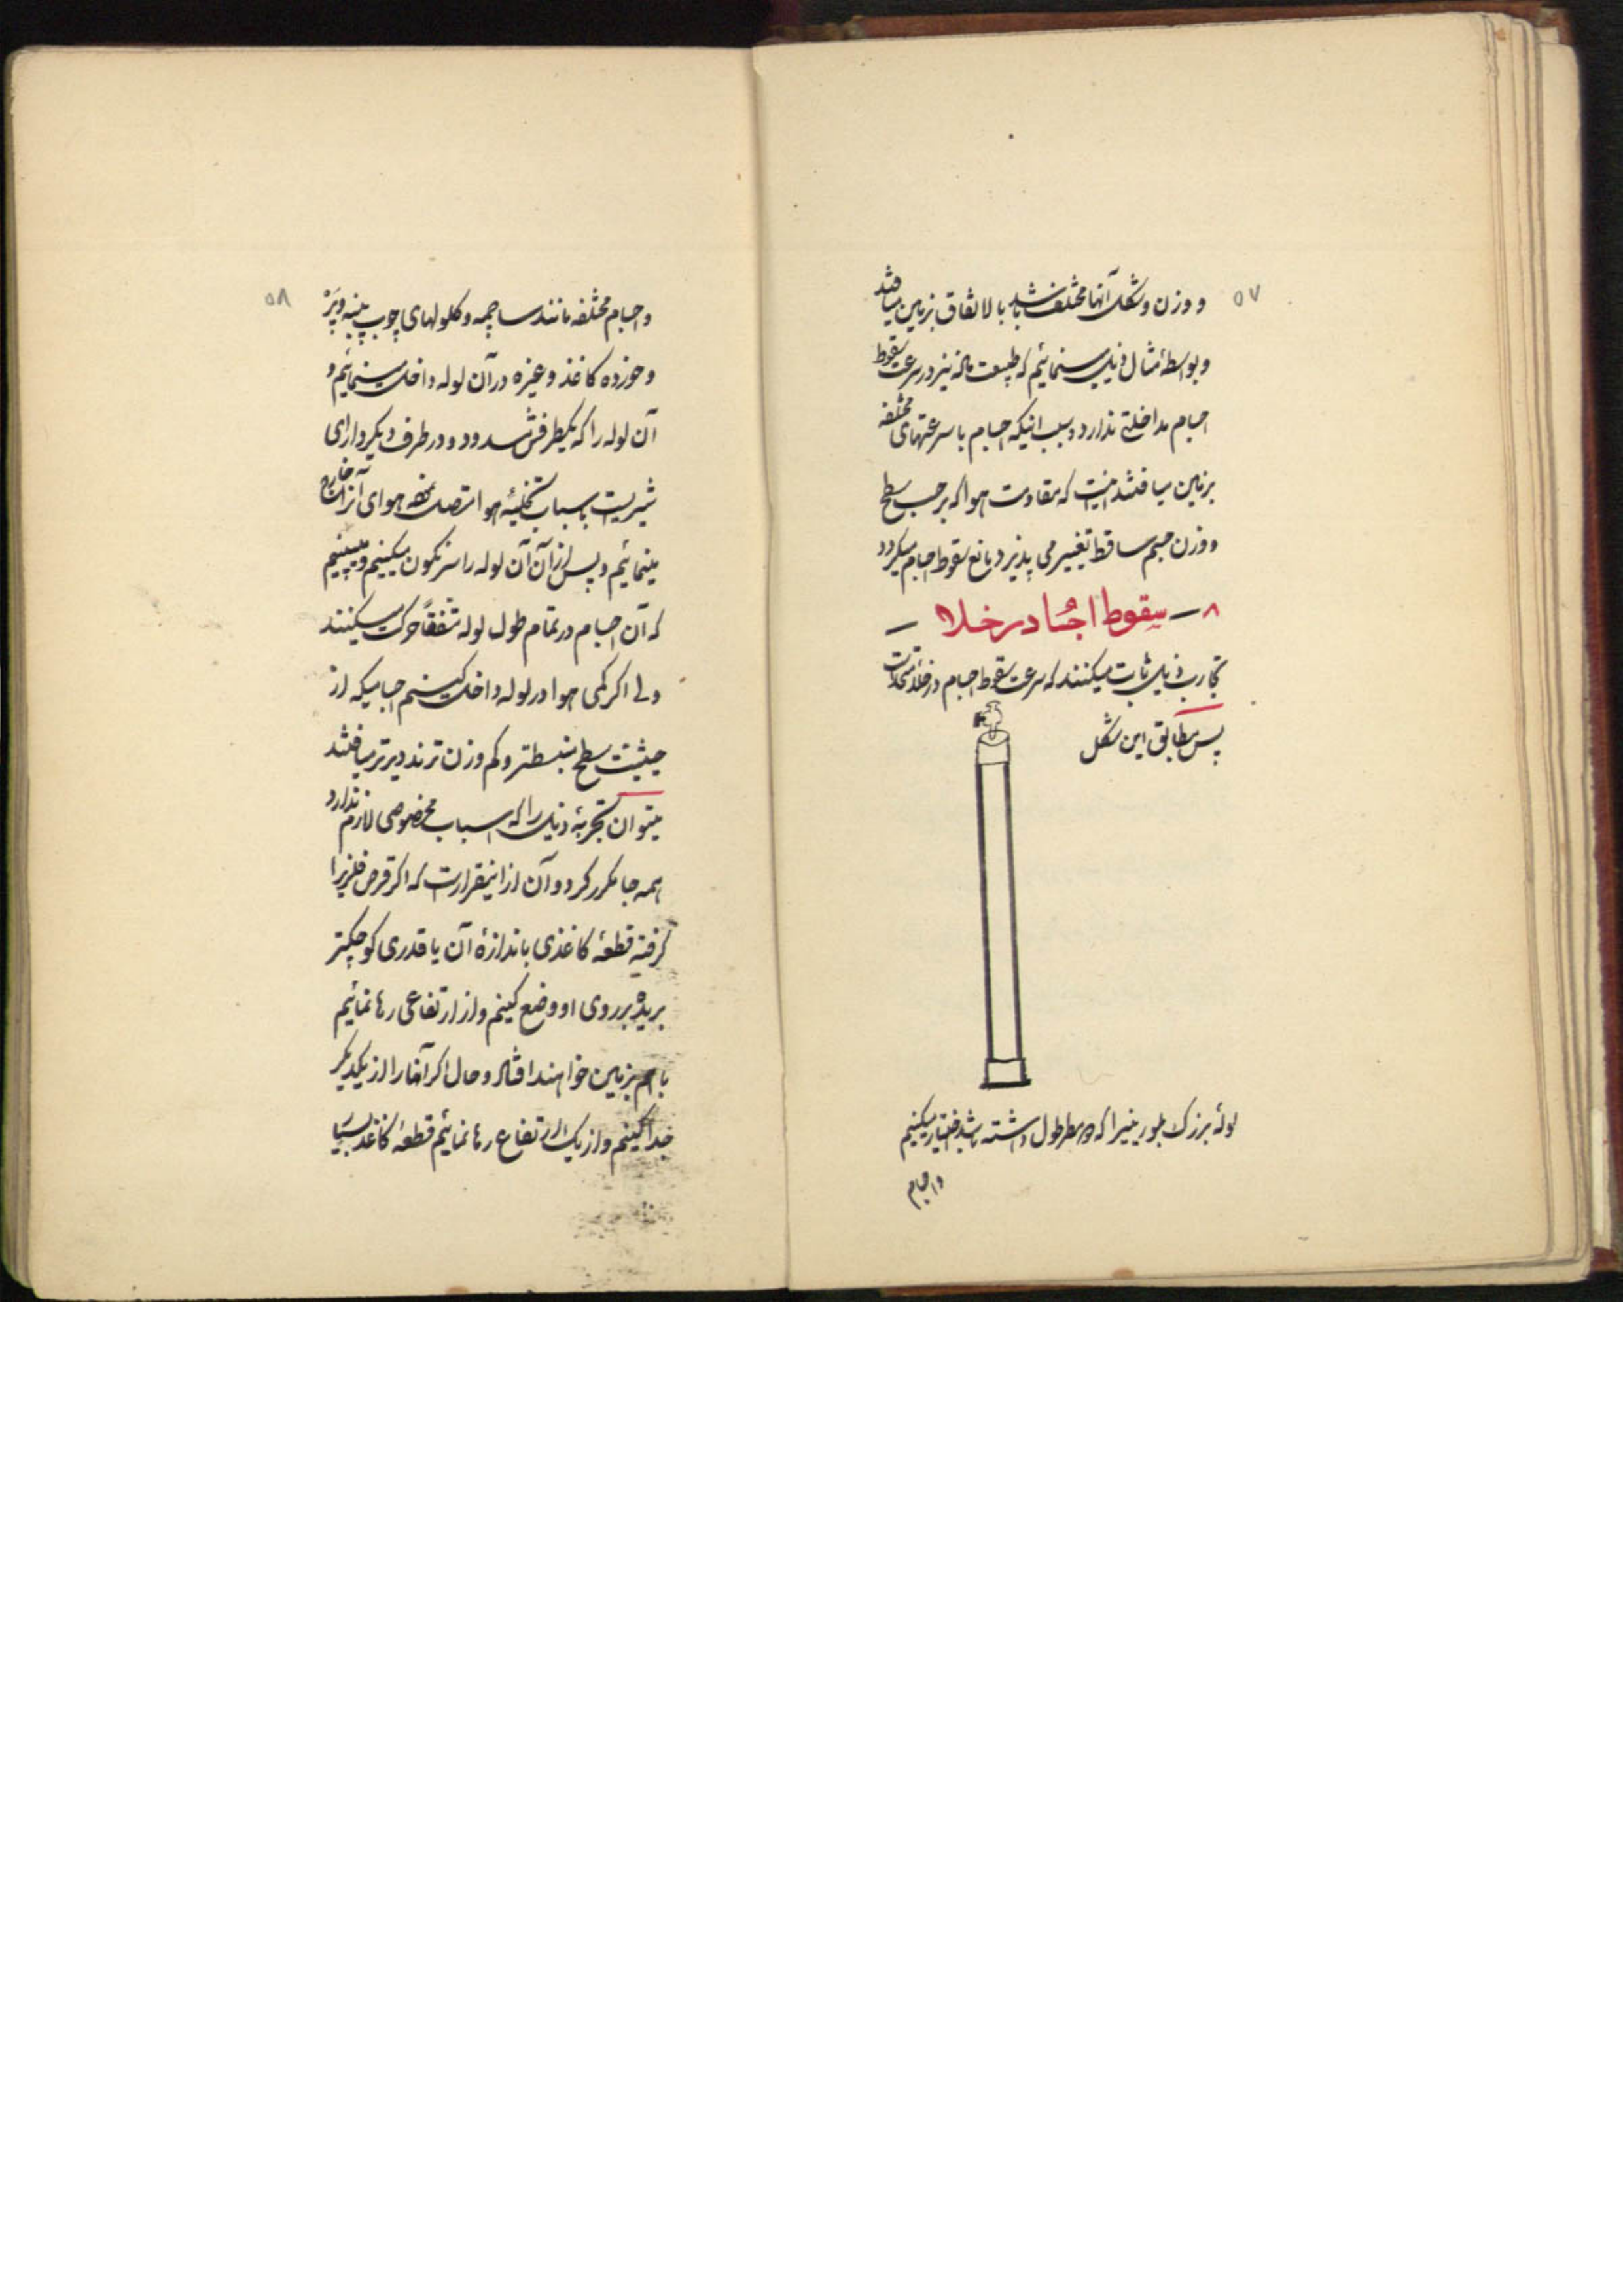 ۵۷
و وزن و شکل آنها مختلف باشد بالاتفاق بزمین میافتند
و بواسطهٔ مثال ذیل مینمائیم که طبیعت ماده نیز در سرعت سقوط
اجسام مداخلتی ندارد و سبب اینکه اجسام با سرعتهای مختلفه
بزمین میافتند اینست که مقاومت هوا که بر حسب سطح
و وزن جسم ساقط تغییر می پذیرد مانع سقوط اجسام میگردد
۸ — سقوط اجساد در خلاء —
تجارب ذیل ثابت میکنند که سرعت سقوط اجسام در خلاء متحد است
پس مطابق این شکل
لولهٔ بزرگ بلورینیرا که دو مطر طول داشته باشد اختیار میکنیم
و اجسام
۵۸
و اجسام مختلفه مانند ساچمه و گلولهای چوب پنبه و پر
و خورده کاغذ و غیره در آن لوله داخل مینمائیم و
آن لوله را که یکطرفش مسدود و در طرف دیگر دارای
شیریست باسباب تخلیهٔ هوا متصل نموده هوای آنرا خارج
مینمائیم و پس از آن آن لوله را سرنگون میکنیم و میبینیم
که آن اجسام در تمام طول لوله متفقاً حرکت میکنند
ولی اگر کمی هوا در لوله داخل کنیم اجسامیکه از
حیثیت سطح منبسطتر و کم وزن ترند دیرتر میافتند
میتوان تجربهٔ ذیل را که اسباب مخصوصی لازم ندارد
همه جا مکرر کرد و آن از اینقرار است که اگر قرص فلزیرا
گرفته قطعهٔ کاغذی باندازهٔ آن یا قدری کوچکتر
بریده بر روی او وضع کنیم و از ارتفاعی رها نمائیم
با هم بزمین خواهند افتاد و حال اگر آنها را از یکدیگر
جدا کنیم و از یک ارتفاع رها نمائیم قطعهٔ کاغذ بسیا